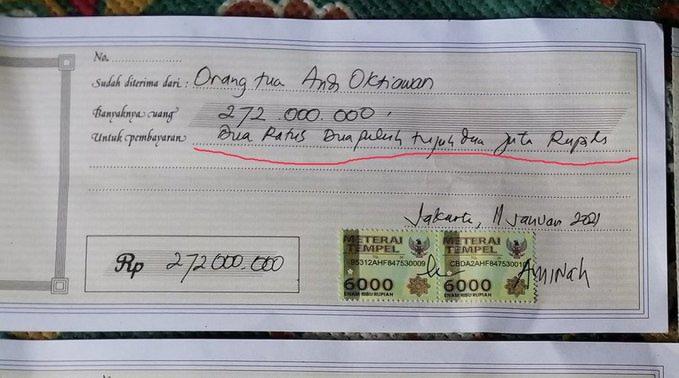 No.
Sudah diterima dari : Orang tua Andi Oktiawan
Banyaknya uang 272.000.000
Untuk pembayaran Dua Ratus Dua puluh tujuh dua juta Rupiah
Jakarta, 11 Januari 2021
Rp 272000.000
METERAI TEMPEL METERAI TEMPEL
95312AHF847530009 CBDA2AHF847530010
6000 6000
ENAM RIBU RUPIAH ENAM RIBU RUPIAH
AMINAH